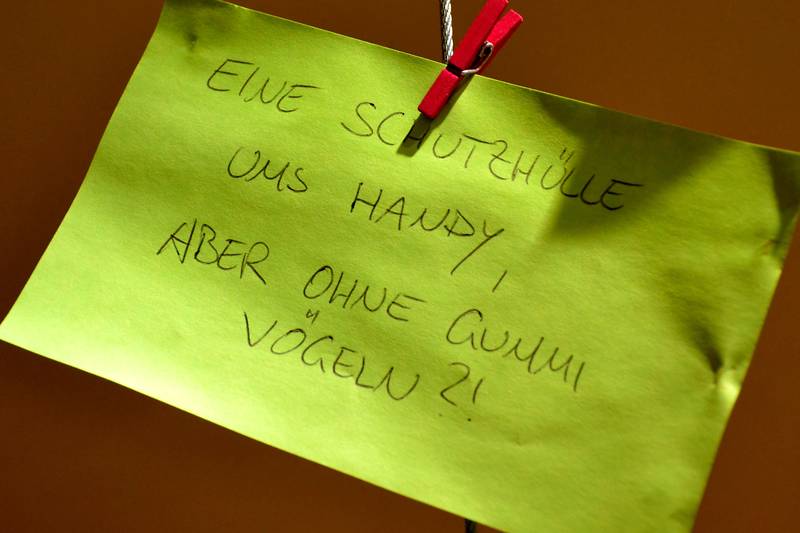 EINE SCHUTZHÜLLE
UMS HANDY,
ABER OHNE GUMMI
VÖGELN ?!